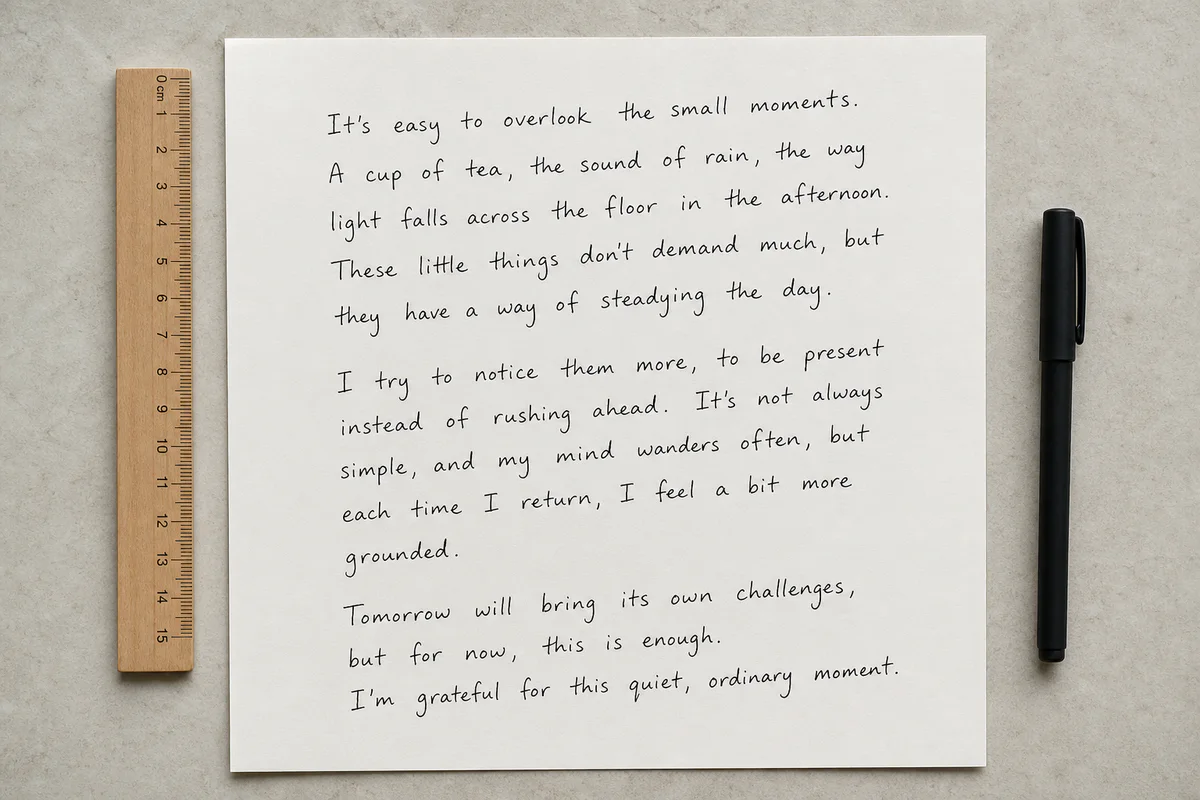 0 cm 1 2 3 4 5 6 7 8 9 10 11 12 13 14 15
It's easy to overlook the small moments.
A cup of tea, the sound of rain, the way
light falls across the floor in the afternoon.
These little things don't demand much, but
they have a way of steadying the day.
I try to notice them more, to be present
instead of rushing ahead. It's not always
simple, and my mind wanders often, but
each time I return, I feel a bit more
grounded.
Tomorrow will bring its own challenges,
but for now, this is enough.
I'm grateful for this quiet, ordinary moment.